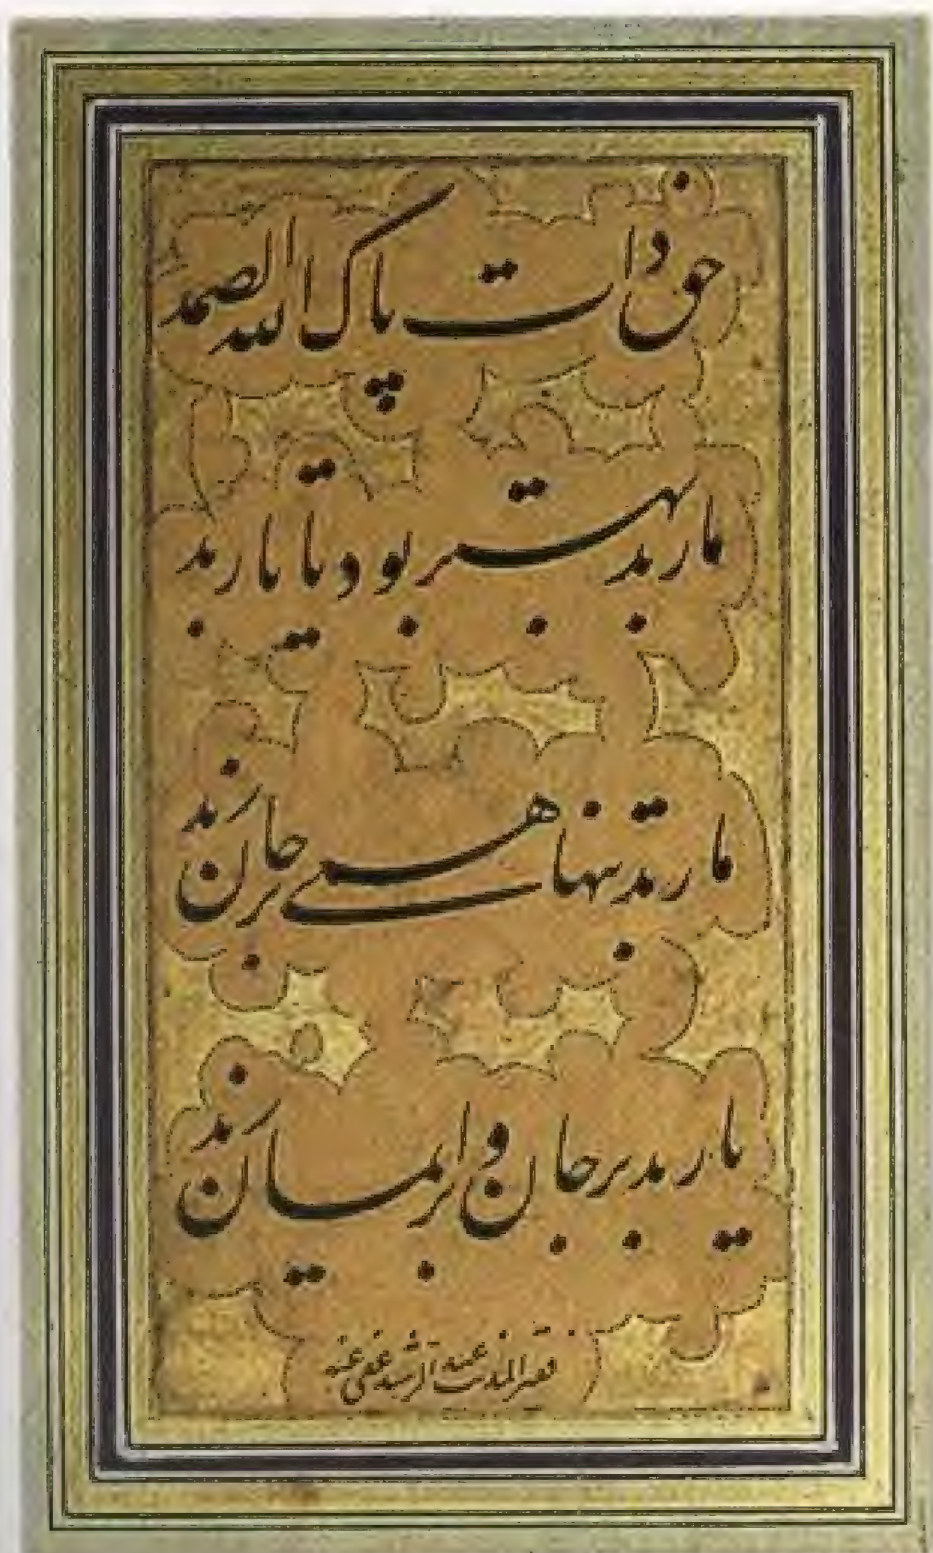 حق ذات پاک الله الصمد
مار بد بهتر بود تا یار بد
مار بد تنها همی بر جان زند
یار بد بر جان و بر ایمان زند
فقیر المذنب عبد الرشید عفی عنه